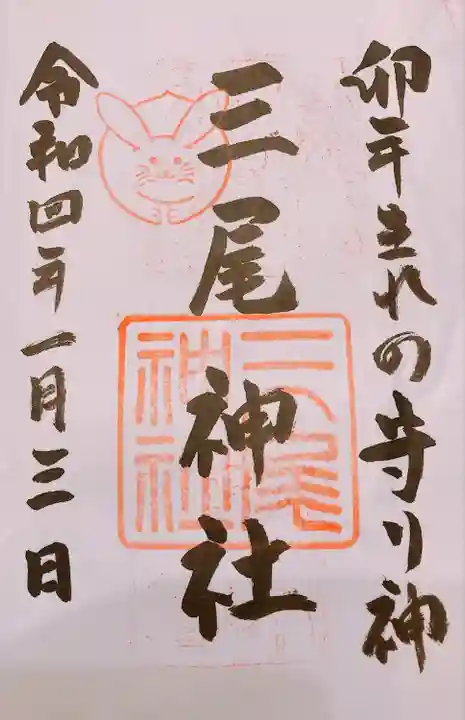 卯年生れの守り神
三尾神社
三尾神社
令和四年一月三日